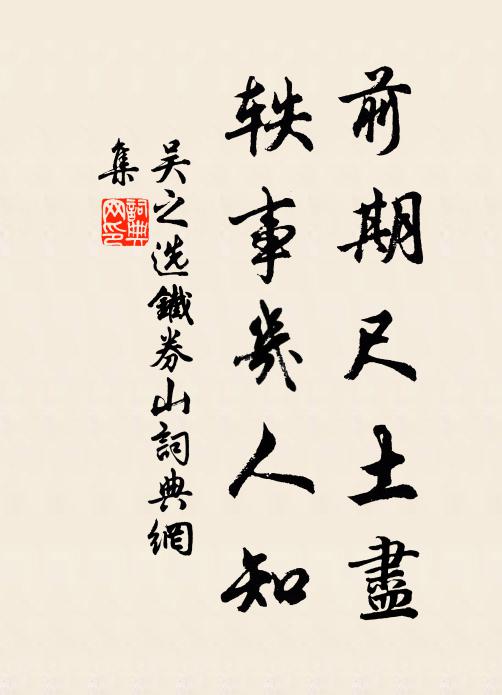 前期尺土盡
軼事幾人知
吴之选鐵券山詞典網
集
詞典网印